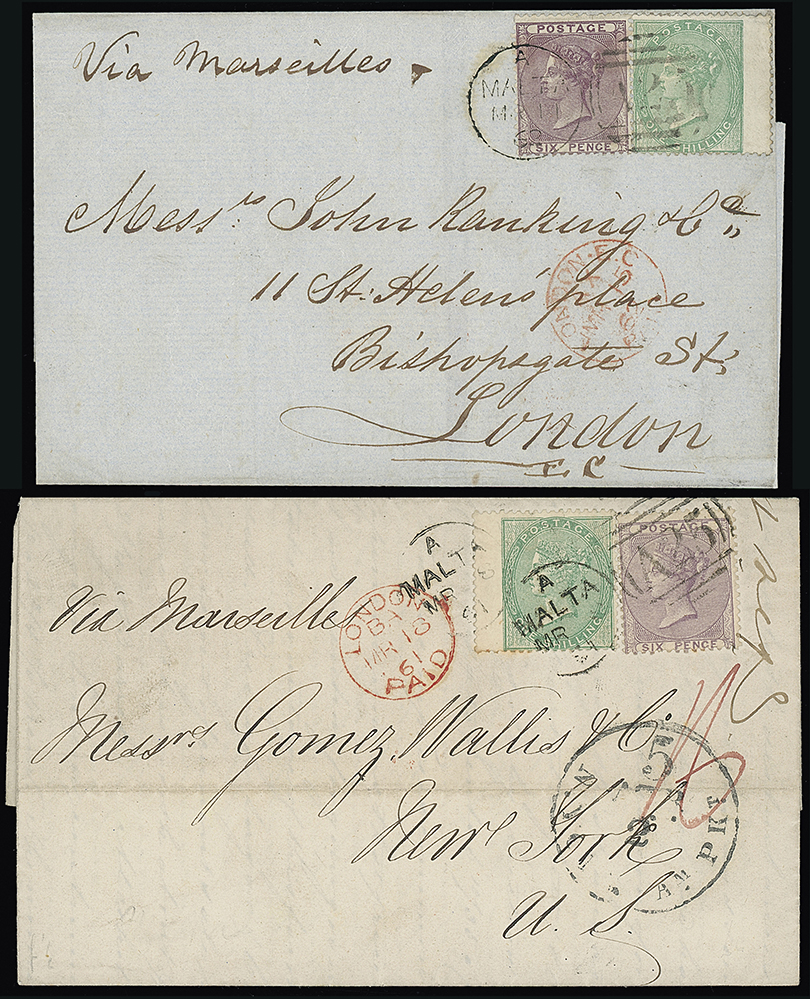 Via Marseilles
POSTAGE
SIX PENCE
POSTAGE
ONE SHILLING
A
MALTA
60
Messrs John Ranking & Co,
LONDON · E C
11 St. Helens place
Bishopsgate St,
London
E C
A
MALTA
MR
POSTAGE
SHILLING
A
MALTA
MR
POSTAGE
SIX PENCE
A25
Via Marseilles
LONDON
BA
MR 18
61
PAID
Messrs Gomez, Wallis & Co
New York
U. S.
AM PKT